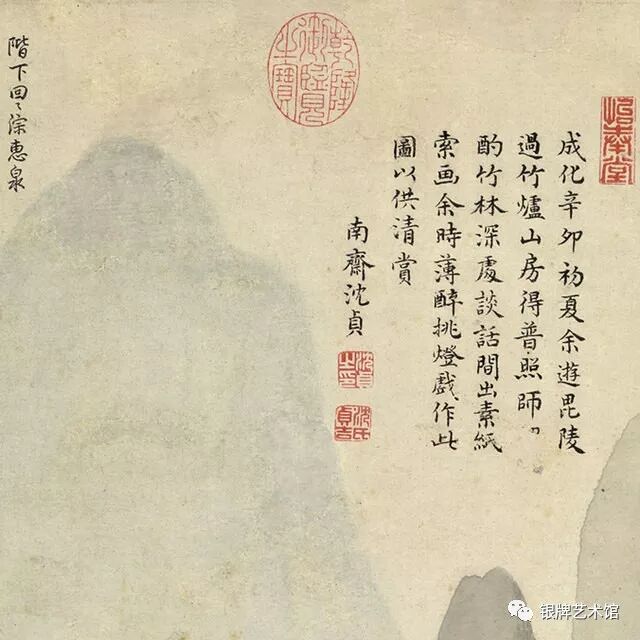 成化辛卯初夏余遊毘陵
過竹爐山房得普照師〻
酌竹林深處談話間出素紙
索画余時薄醉挑燈戲作此
圖以供清賞
南齋沈貞
沈氏貞吉
乾隆御覽之寶
階下回〻淙惠泉
银牌艺术馆